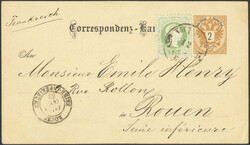 Frankreich
Correspondenz-Ka
2
Monsieur Emile Henry
Rue Rollon
Rouen
Seine inférieure